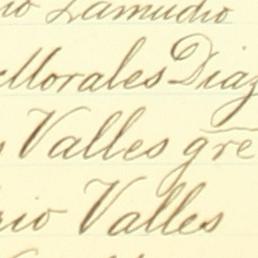 io Zamudio
Morales Diaz
Valles gre
rio Valles